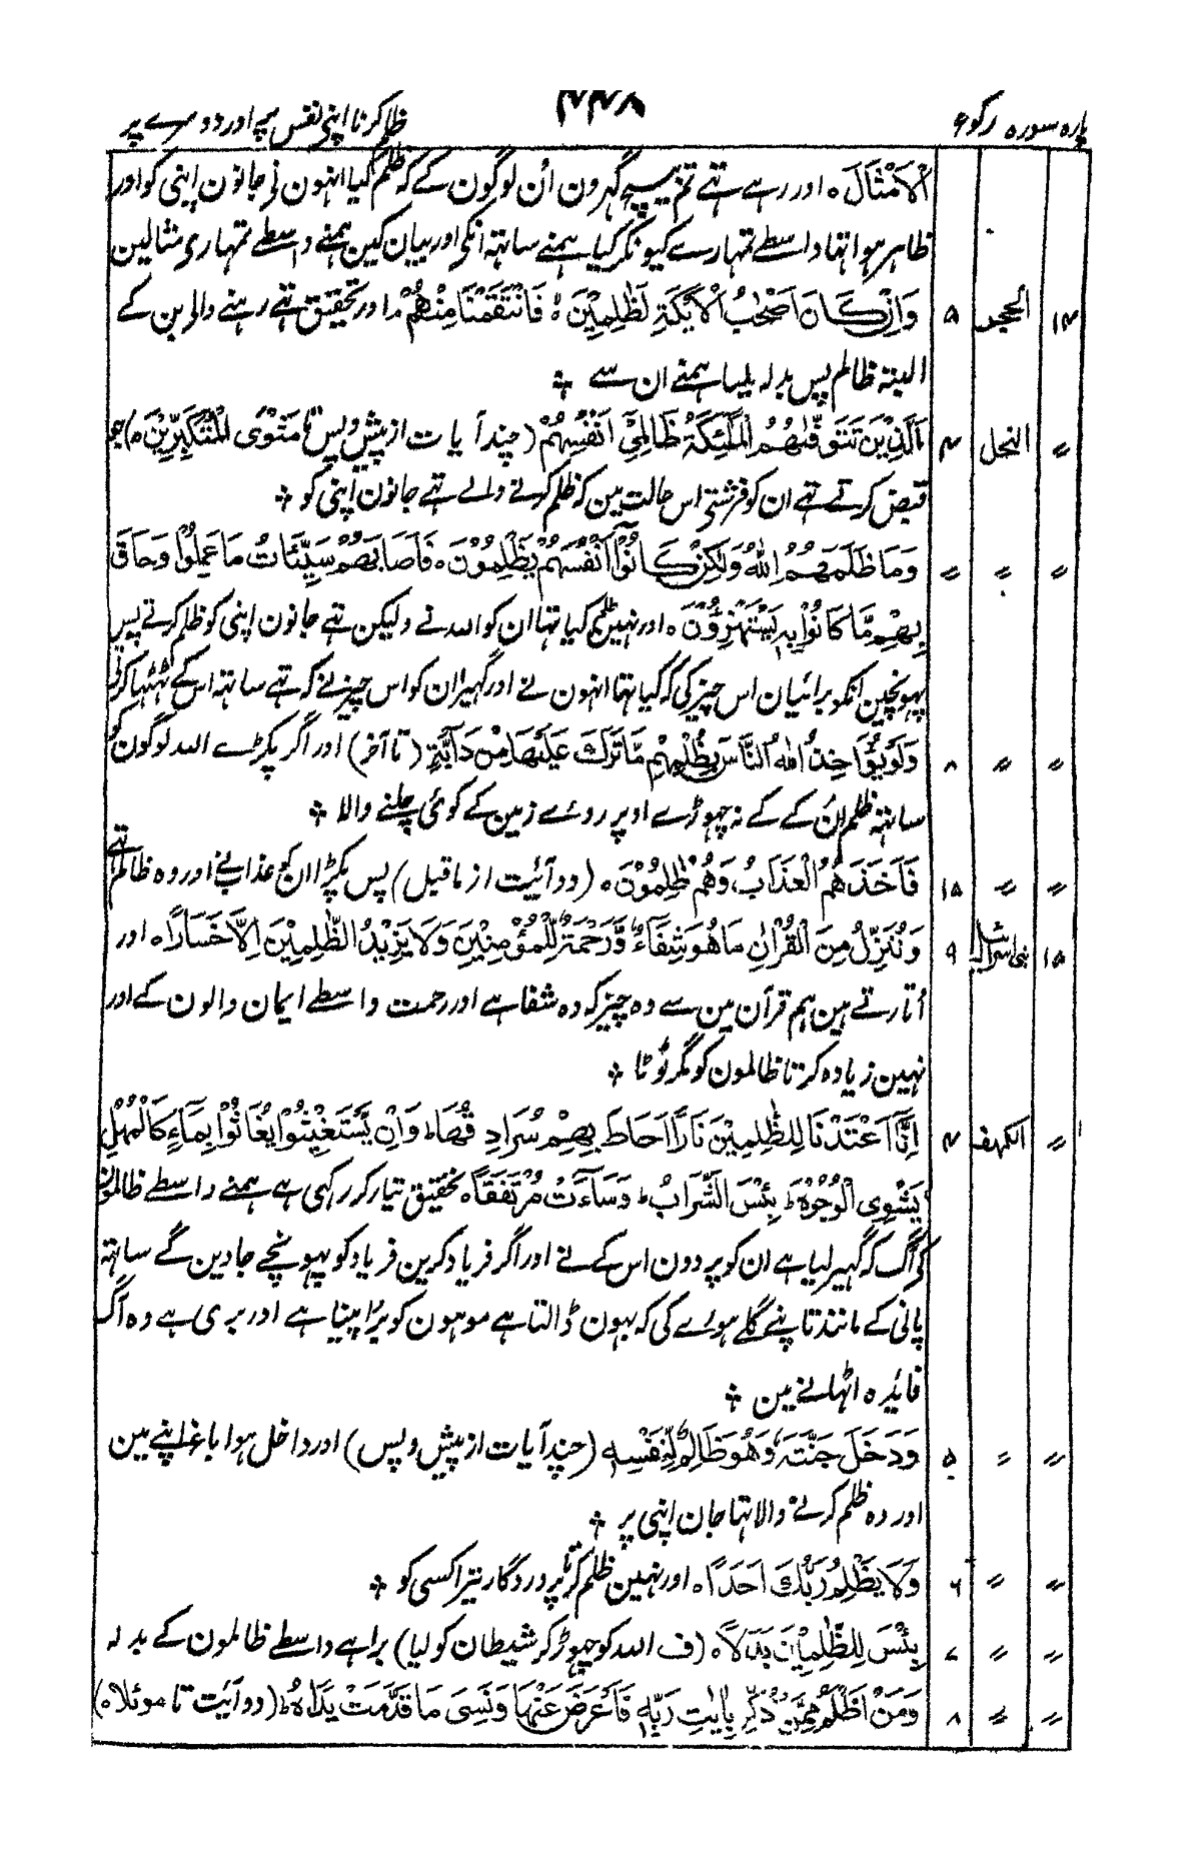 پارہ سورہ رکوع ۴۴۸ ظلم کرنا اپنی نفس پر اور دوسرے پر
الْاَمْثَالَ ہ اور رہے تہے تم بیچ گہرون ان لوگون کے کہ ظلم کیا انہون نی جانون اپنی کو اور
ظاہر ہوا تہا واسطے تمہارے کیونکر کیا ہمنے ساتہہ انکی اور بیان کین ہمنے واسطے تمہاری مثالین
۱۴ الحجر ۵ وَاِنْ کَانَ اَصْحٰبُ الْاَیْکَةِ لَظٰلِمِیْنَ ہ فَانْتَقَمْنَا مِنْهُمْ م اور تحقیق تہے رہنے والی بن کے
البتہ ظالم پس بدلہ لیا ہمنے ان سے ؞
〃 النحل ۴ اَلَّذِیْنَ تَتَوَفّٰىهُمُ الْمَلٰٓئِکَةُ ظَالِمِیْٓ اَنْفُسِهِمْ (چند آیات از پیش و پس تا مَثْوَی الْمُتَکَبِّرِیْنَ ہ) جو
قبض کرتے تہے ان کو فرشتی اس حالت مین کہ ظلم کرنے والے تہے جانون اپنی کو ؞
〃 〃 〃 وَمَا ظَلَمَهُمُ اللّٰهُ وَلٰکِنْ کَانُوْٓا اَنْفُسَهُمْ یَظْلِمُوْنَ ہ فَاَصَابَهُمْ سَیِّئَاتُ مَا عَمِلُوْا وَحَاقَ
بِهِمْ مَّا کَانُوْا بِهٖ یَسْتَهْزِءُوْنَ ہ اور نہین ظلم کیا تہا ان کو اللہ نے ولیکن تہے جانون اپنی کو ظلم کرتے پس
پہونچین انکو برائیان اس چیز کی کہ کیا تہا انہون نے اور گہیرا ان کو اس چیز نے کہ تہے ساتہہ اس کے ٹہٹہا کرتے
〃 〃 ۸ وَلَوْ یُؤَاخِذُ اللّٰهُ النَّاسَ بِظُلْمِهِمْ مَّا تَرَکَ عَلَیْهَا مِنْ دَآبَّةٍ (تا آخر) اور اگر پکڑے اللہ لوگون کو
ساتہہ ظلم ان کے کے نہ چہوڑے اوپر روے زمین کے کوئی چلنے والا ؞
〃 〃 ۱۵ فَاَخَذَهُمُ الْعَذَابُ وَهُمْ ظٰلِمُوْنَ ہ (دو آئیت از ماقبل) پس پکڑا ان کو عذاب نے اور وہ ظالم تہے
۱۵ بنی اسرائیل ۹ وَنُنَزِّلُ مِنَ الْقُرْاٰنِ مَا هُوَ شِفَآءٌ وَّرَحْمَةٌ لِّلْمُؤْمِنِیْنَ وَلَا یَزِیْدُ الظّٰلِمِیْنَ اِلَّا خَسَارًا ہ اور
اُتارتے ہین ہم قرآن مین سے وہ چیز کہ وہ شفا ہے اور رحمت واسطے ایمان والون کے اور
نہین زیادہ کرتا ظالمون کو مگر ٹوٹا ؞
〃 الکہف ۴ اِنَّآ اَعْتَدْنَا لِلظّٰلِمِیْنَ نَارًا اَحَاطَ بِهِمْ سُرَادِقُهَا ط وَاِنْ یَّسْتَغِیْثُوْا یُغَاثُوْا بِمَآءٍ کَالْمُهْلِ
یَشْوِی الْوُجُوْهَ ط بِئْسَ الشَّرَابُ ط وَسَآءَتْ مُرْتَفَقًا ہ تحقیق تیار کر رکہی ہے ہمنے واسطے ظالمون
کی آگ کہ گہیر لیا ہے ان کو پردون اس کے نے اور اگر فریاد کرین فریاد کو پہونچے جاوین گے ساتہہ
پانی کے مانند تانبے گلے ہوے کی کہ بہون ڈالتا ہے مونہون کو بُرا پینا ہے اور بری ہے وہ آگ
فائیدہ اٹہانے مین ؞
〃 〃 ۵ وَدَخَلَ جَنَّتَهٗ وَهُوَ ظَالِمٌ لِّنَفْسِهٖ (چند آیات از پیش و پس) اور داخل ہوا باغ اپنے مین
اور وہ ظلم کرنے والا تہا جان اپنی پر ؞
〃 〃 ۶ وَلَا یَظْلِمُ رَبُّکَ اَحَدًا ہ اور نہین ظلم کرتا پروردگار تیرا کسی کو ؞
〃 〃 ۷ بِئْسَ لِلظّٰلِمِیْنَ بَدَلًا ہ (ف اللہ کو چہوڑ کر شیطان کو لیا) برا ہے واسطے ظالمون کے بدلہ
〃 〃 ۸ وَمَنْ اَظْلَمُ مِمَّنْ ذُکِّرَ بِاٰیٰتِ رَبِّهٖ فَاَعْرَضَ عَنْهَا وَنَسِیَ مَا قَدَّمَتْ یَدٰهُ ط (دو آئیت تا موئلا ہ)